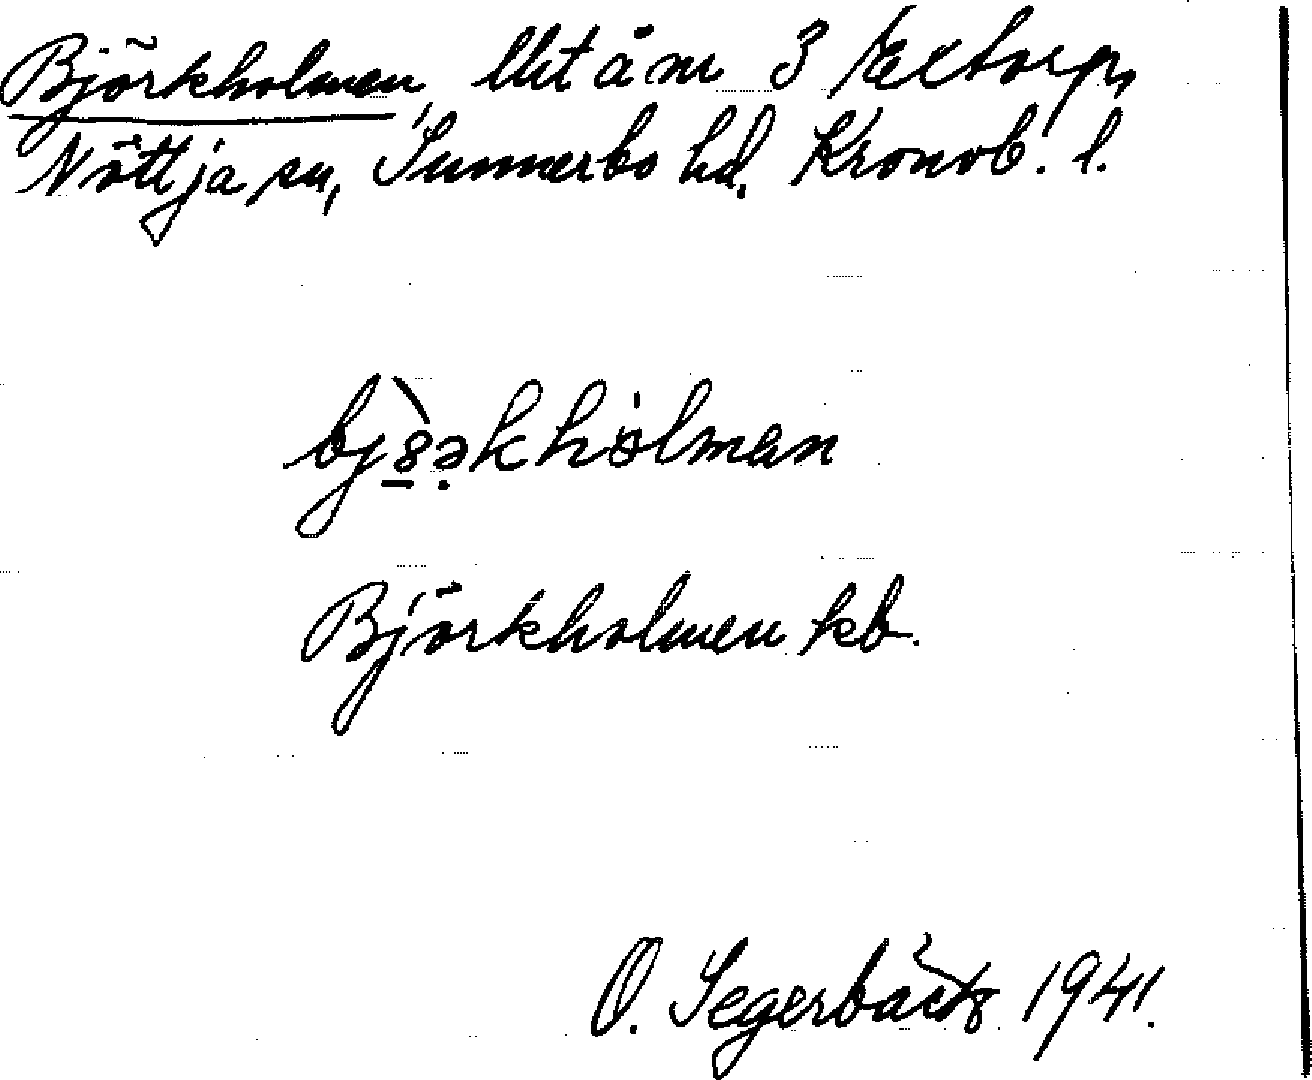 Björkholmen, Utt å nr 3 Extorp,
Nöttja sn, Sunnerbo hd. Kronob. l.
bj8əkhölman
Björkholmen kb.
O. Segerbäck 1941.